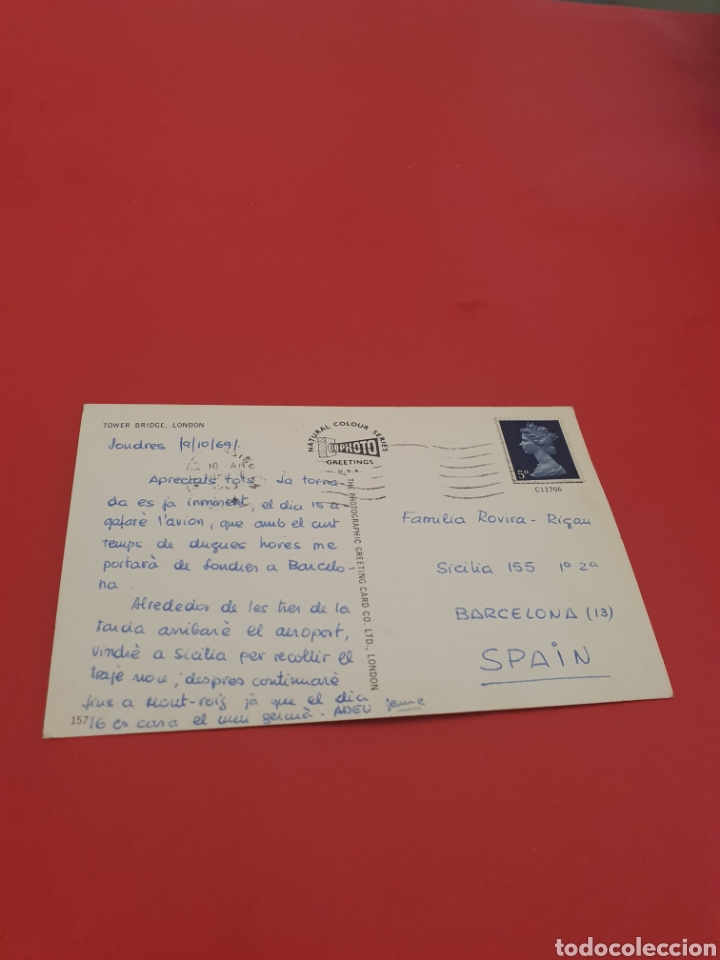 TOWER BRIDGE, LONDON
Londres 19/10/69/.
Apreciats tots: La torna-
da es ja inminent, el dia 15 a-
gafaré l'avion, que amb el curt
temps de dugues hores me
portarà de Londres a Barcelo-
na.
Alrededor de les tres de la
tarda arribarè el aeroport,
vindrè a Sicilia per recollir el
traje nou, despres continuarè
fins a Mont-roig jà que el dia
16 es casa el meu germà. ADEU Jaume
157
NATURAL COLOUR SERIES
PHOTO
GREETINGS
THE PHOTOGRAPHIC GREETING CARD CO. LTD., LONDON
5D
C12706
Familia Rovira - Rigau
Sicilia 155 1º 2ª
BARCELONA (13)
SPAIN
todocoleccion